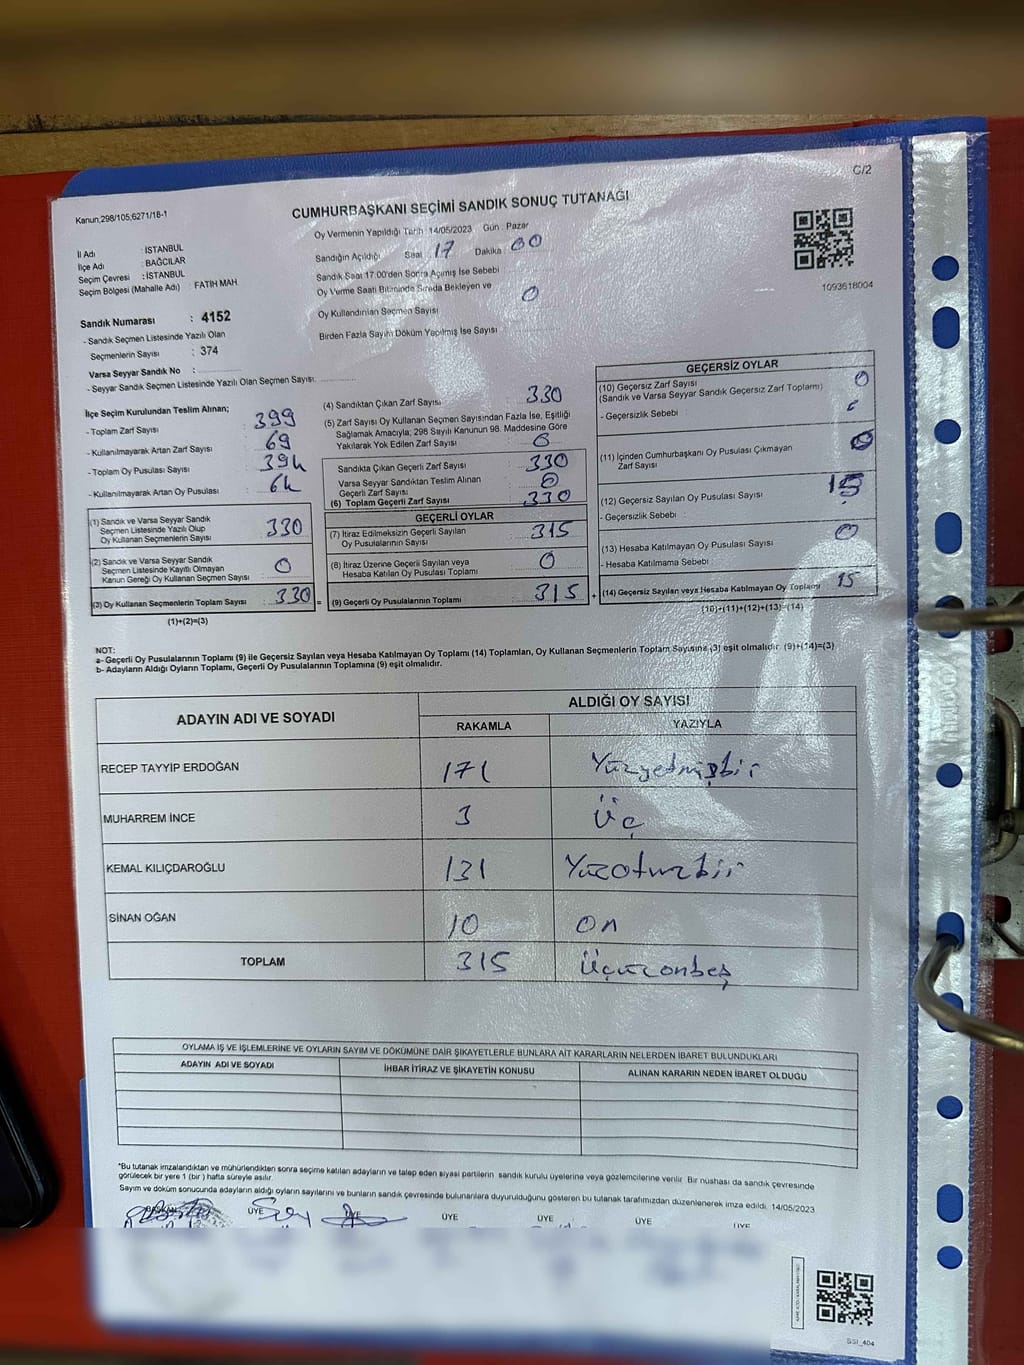 C/2
Kanun;298/105;6271/18-1
CUMHURBAŞKANI SEÇİMİ SANDIK SONUÇ TUTANAĞI
İl Adı : İSTANBUL
İlçe Adı : BAĞCILAR
Seçim Çevresi : İSTANBUL
Seçim Bölgesi (Mahalle Adı) : FATİH MAH.
Sandık Numarası : 4152
- Sandık Seçmen Listesinde Yazılı Olan
Seçmenlerin Sayısı : 374
Varsa Seyyar Sandık No :
- Seyyar Sandık Seçmen Listesinde Yazılı Olan Seçmen Sayısı:
Oy Vermenin Yapıldığı Tarih 14/05/2023 Gün : Pazar
Sandığın Açıldığı Saat 17 Dakika 00
Sandık Saat 17:00'den Sonra Açımış İse Sebebi
Oy Verme Saati Bitiminde Sırada Bekleyen ve
Oy Kullandırılan Seçmen Sayısı 0
Birden Fazla Sayım Döküm Yapılmış İse Sayısı
1093618004
İlçe Seçim Kurulundan Teslim Alınan;
- Toplam Zarf Sayısı 399
- Kullanılmayarak Artan Zarf Sayısı 69
- Toplam Oy Pusulası Sayısı 394
- Kullanılmayarak Artan Oy Pusulası 64
(1) Sandık ve Varsa Seyyar Sandık
Seçmen Listesinde Yazılı Olup
Oy Kullanan Seçmenlerin Sayısı 330
(2) Sandık ve Varsa Seyyar Sandık
Seçmen Listesinde Kayıtlı Olmayan
Kanun Gereği Oy Kullanan Seçmen Sayısı 0
(3) Oy Kullanan Seçmenlerin Toplam Sayısı 330 =
(1)+(2)=(3)
(4) Sandıktan Çıkan Zarf Sayısı 330
(5) Zarf Sayısı Oy Kullanan Seçmen Sayısından Fazla İse, Eşitliği
Sağlamak Amacıyla; 298 Sayılı Kanunun 98. Maddesine Göre
Yakılarak Yok Edilen Zarf Sayısı 0
Sandıkta Çıkan Geçerli Zarf Sayısı 330
Varsa Seyyar Sandıktan Teslim Alınan
Geçerli Zarf Sayısı 0
(6) Toplam Geçerli Zarf Sayısı 330
GEÇERLİ OYLAR
(7) İtiraz Edilmeksizin Geçerli Sayılan
Oy Pusulalarının Sayısı 315
(8) İtiraz Üzerine Geçerli Sayılan veya
Hesaba Katılan Oy Pusulası Toplamı 0
(9) Geçerli Oy Pusulalarının Toplamı 315 +
GEÇERSİZ OYLAR
(10) Geçersiz Zarf Sayısı 0
(Sandık ve Varsa Seyyar Sandık Geçersiz Zarf Toplamı)
- Geçersizlik Sebebi
(11) İçinden Cumhurbaşkanı Oy Pusulası Çıkmayan
Zarf Sayısı 0
(12) Geçersiz Sayılan Oy Pusulası Sayısı 15
- Geçersizlik Sebebi :
(13) Hesaba Katılmayan Oy Pusulası Sayısı 0
- Hesaba Katılmama Sebebi :
(14) Geçersiz Sayılan veya Hesaba Katılmayan Oy Toplamı 15
(10)+(11)+(12)+(13)=(14)
NOT:
a- Geçerli Oy Pusulalarının Toplamı (9) ile Geçersiz Sayılan veya Hesaba Katılmayan Oy Toplamı (14) Toplamları, Oy Kullanan Seçmenlerin Toplam Sayısına (3) eşit olmalıdır. (9)+(14)=(3)
b- Adayların Aldığı Oyların Toplamı, Geçerli Oy Pusulalarının Toplamına (9) eşit olmalıdır.
ADAYIN ADI VE SOYADI ALDIĞI OY SAYISI
RAKAMLA YAZIYLA
RECEP TAYYİP ERDOĞAN 171 Yüzyetmişbir
MUHARREM İNCE 3 Üç
KEMAL KILIÇDAROĞLU 131 Yüzotuzbir
SİNAN OĞAN 10 On
TOPLAM 315 Üçyüzonbeş
OYLAMA İŞ VE İŞLEMLERİNE VE OYLARIN SAYIM VE DÖKÜMÜNE DAİR ŞİKAYETLERLE BUNLARA AİT KARARLARIN NELERDEN İBARET BULUNDUKLARI
ADAYIN ADI VE SOYADI İHBAR İTİRAZ VE ŞİKAYETİN KONUSU ALINAN KARARIN NEDEN İBARET OLDUĞU
*Bu tutanak imzalandıktan ve mühürlendikten sonra seçime katılan adayların ve talep eden siyasi partilerin sandık kurulu üyelerine veya gözlemcilerine verilir. Bir nüshası da sandık çevresinde
görülecek bir yere 1 (bir) hafta süreyle asılır.
Sayım ve döküm sonucunda adayların aldığı oyların sayılarını ve bunların sandık çevresinde bulunanlara duyurulduğunu gösteren bu tutanak tarafımızdan düzenlenerek imza edildi. 14/05/2023
BAŞKAN ÜYE ÜYE ÜYE ÜYE ÜYE ÜYE
SSİ_404